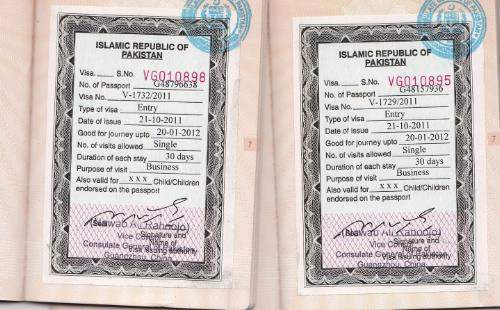 ISLAMIC REPUBLIC OF
PAKISTAN
Visa. S.No. VG010898
No. of Passport G48796638
Visa No. V-1732/2011
Type of visa Entry
Date of issue 21-10-2011
Good for journey upto 20-01-2012
No. of visits allowed Single
Duration of each stay 30 days
Purpose of visit Business
Also valid for xxx Child/Children
endorsed on the passport
Signature and
Vice Consul
Name of
Visa issuing authority
Consulate General of Pakistan
Guangzhou, China
7
ISLAMIC REPUBLIC OF
PAKISTAN
Visa. S.No. VG010895
No. of Passport G48157936
Visa No. V-1729/2011
Type of visa Entry
Date of issue 21-10-2011
Good for journey upto 20-01-2012
No. of visits allowed Single
Duration of each stay 30 days
Purpose of visit Business
Also valid for xxx Child/Children
endorsed on the passport
Signature and
Vice Consul
Name of
Visa issuing authority
Consulate General of Pakistan
Guangzhou, China
7